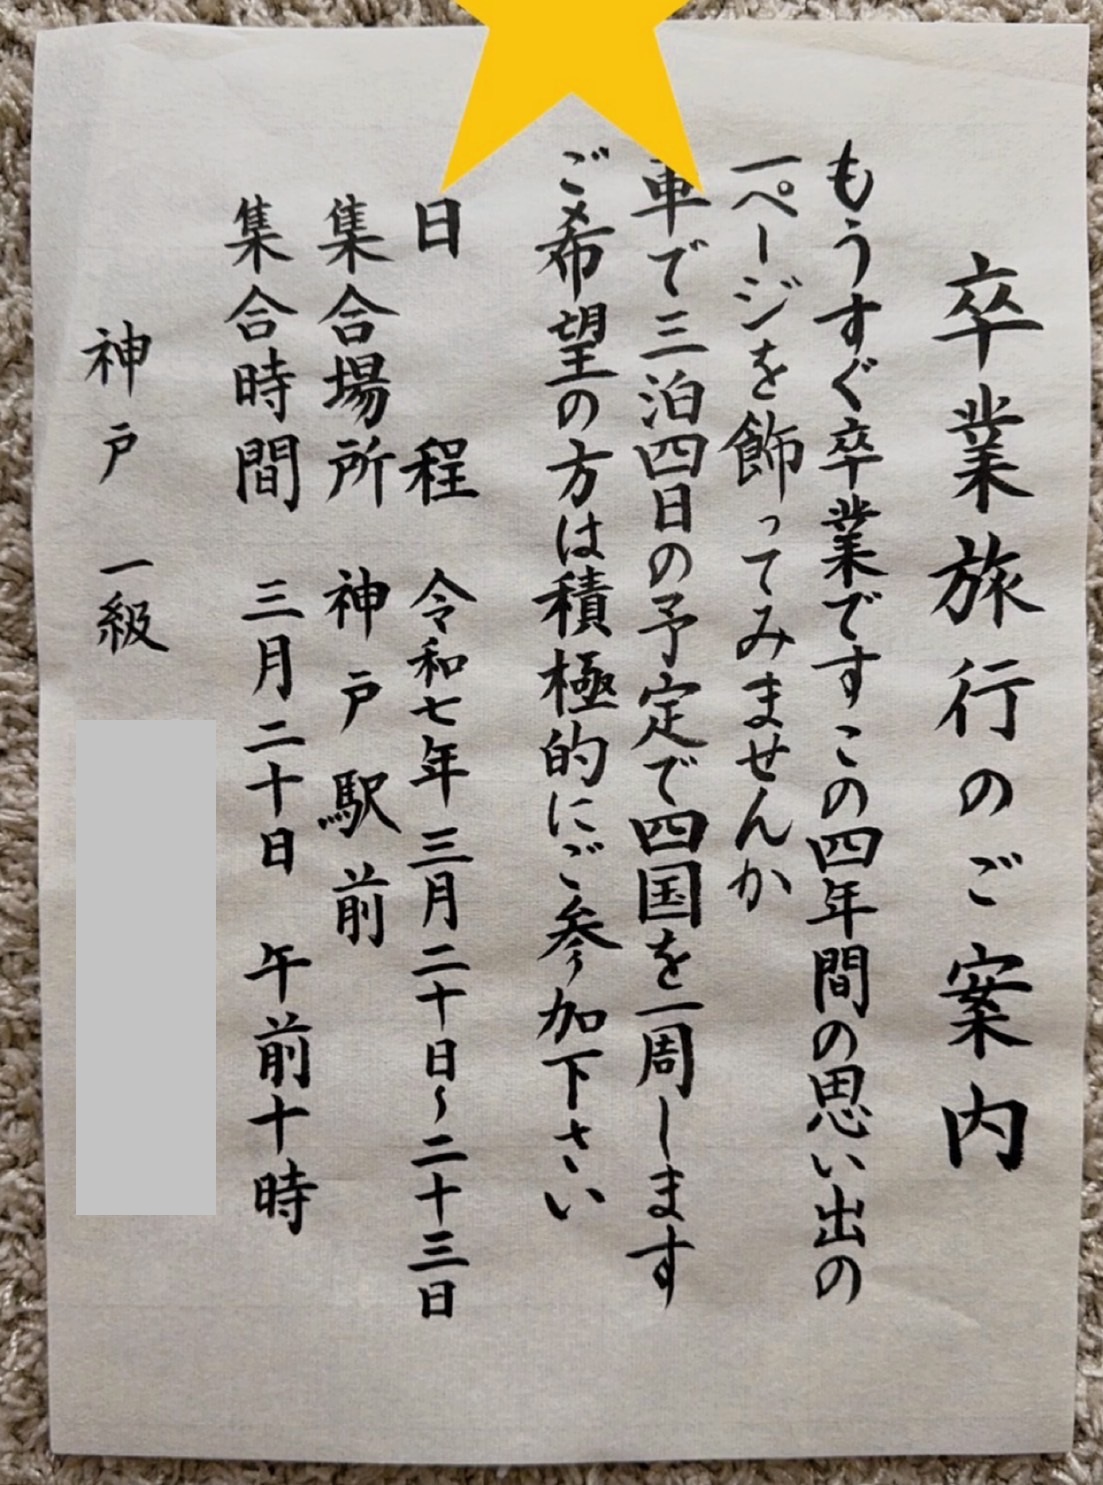 卒業旅行のご案内
もうすぐ卒業ですこの四年間の思い出の
一ページを飾ってみませんか
車で三泊四日の予定で四国を一周します
ご希望の方は積極的にご参加下さい
日程 令和七年三月二十日~二十三日
集合場所 神戸駅前
集合時間 三月二十日 午前十時
神戸 一級